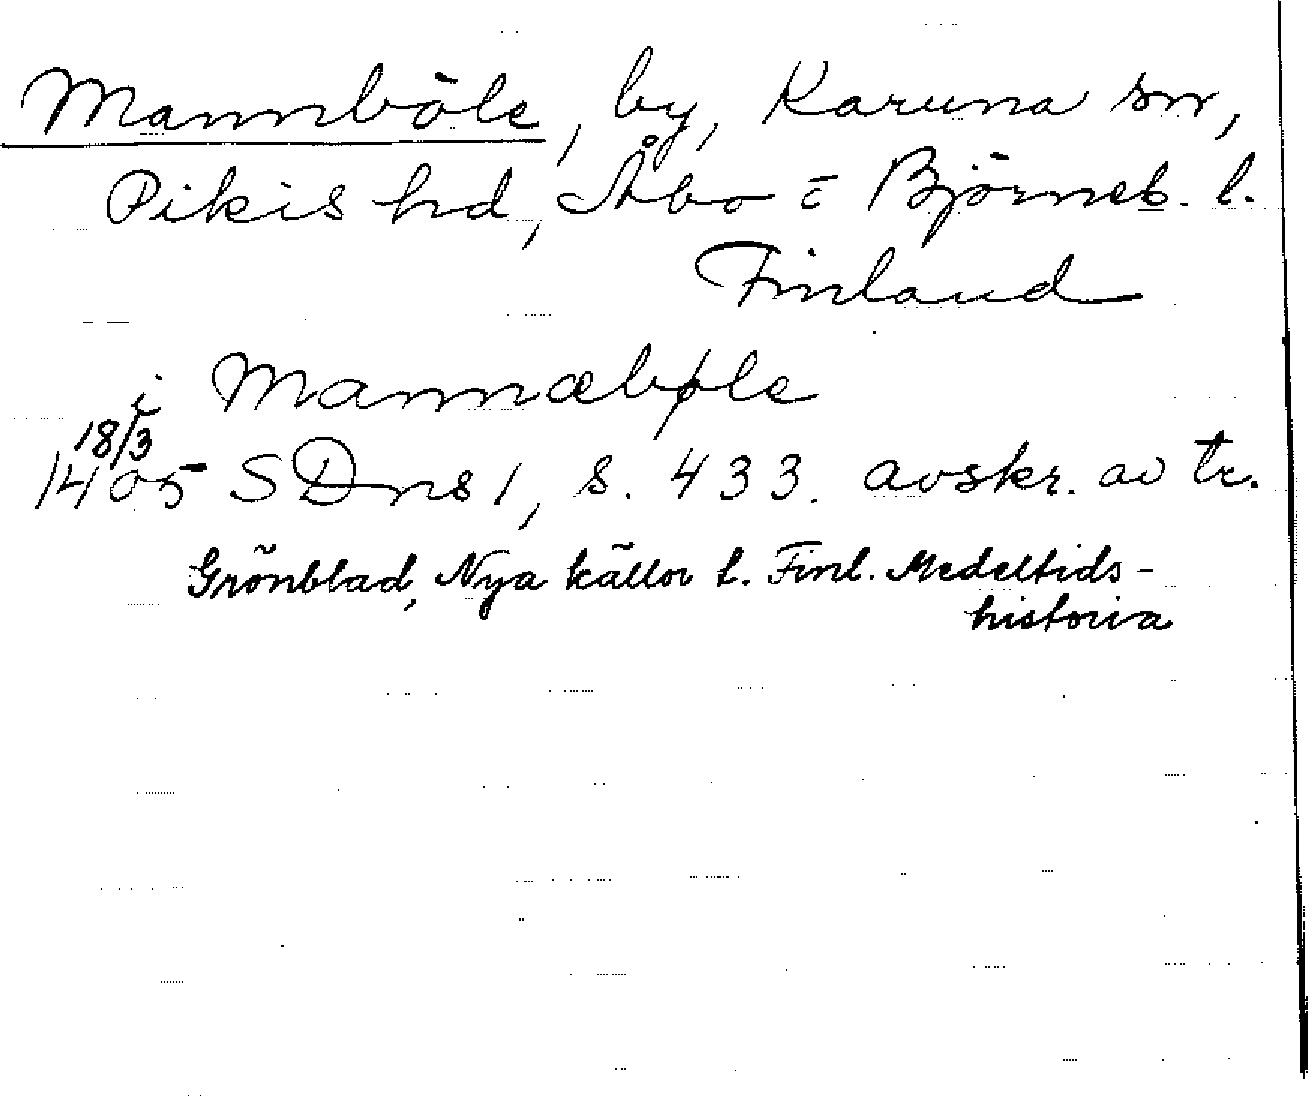 Mannböle, by, Karuna sn,
Pikis hd, Åbo o Björneb. l.
Finland
i Mannæbøle
18/3
1405 SDns 1, s. 433. avskr. av tr.
Grönblad, Nya källor t. Finl. Medeltids-
historia